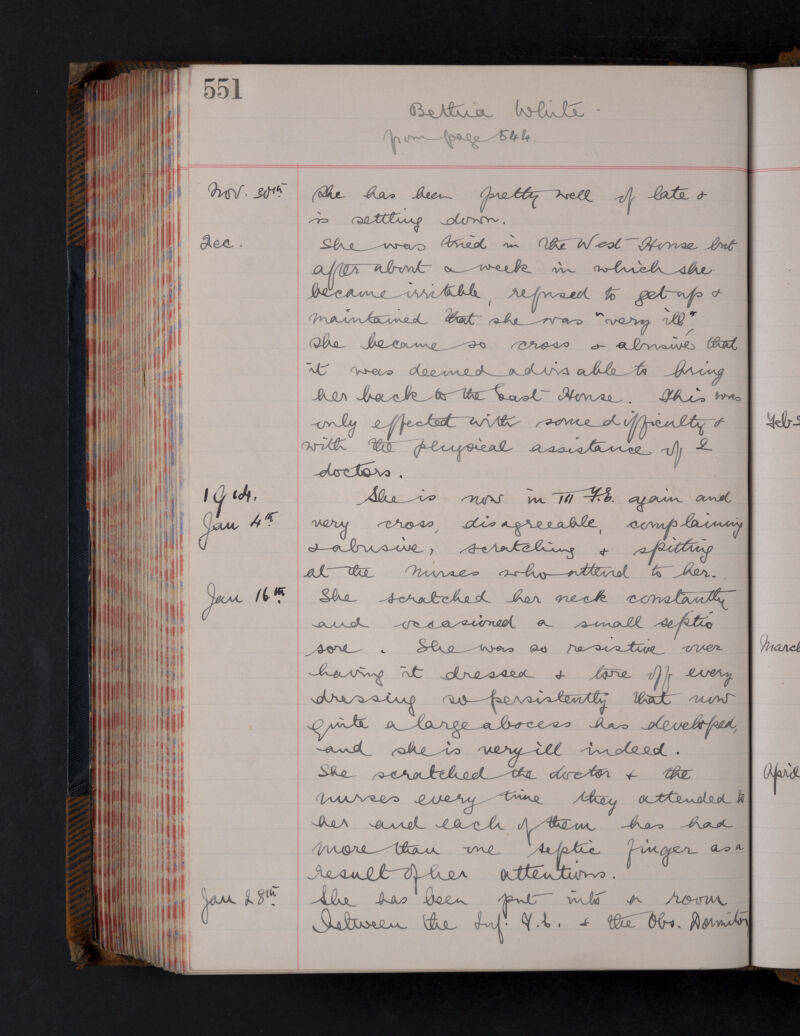 551
Bettria White.
from page 544.
Nov. 30th She has been pretty well of late &
is settling down.
Dec. She was tried in the West House but
after about a week in which she
became irritable, refused to get up &
maintained that she was "very ill",
she became so cross & abusive that
it was deemed advisable to bring
her back to the East House. This was
only effected with some difficulty &
with the physical assistance of 2
doctors.
1914. She is now in III F.E. again and
Jan 4th very cross, disagreeable, complaining
& abusive, scratching & spitting
at the nurses who attend to her.
Jan 16th She scratched her neck constantly
and occasioned a small septic
sore. She was so resistive over
having it dressed & tore off every
dressing so persistently that now
quite a large abscess has developed,
and she is very ill indeed.
She scratched the doctor & the
nurses every time they attended to
her and each of them has had
more than one septic finger as a
result of her attentions.
Jan 28th She has been put into a room
between the Inf. & the Obs. Dormitor
Feb
March
April